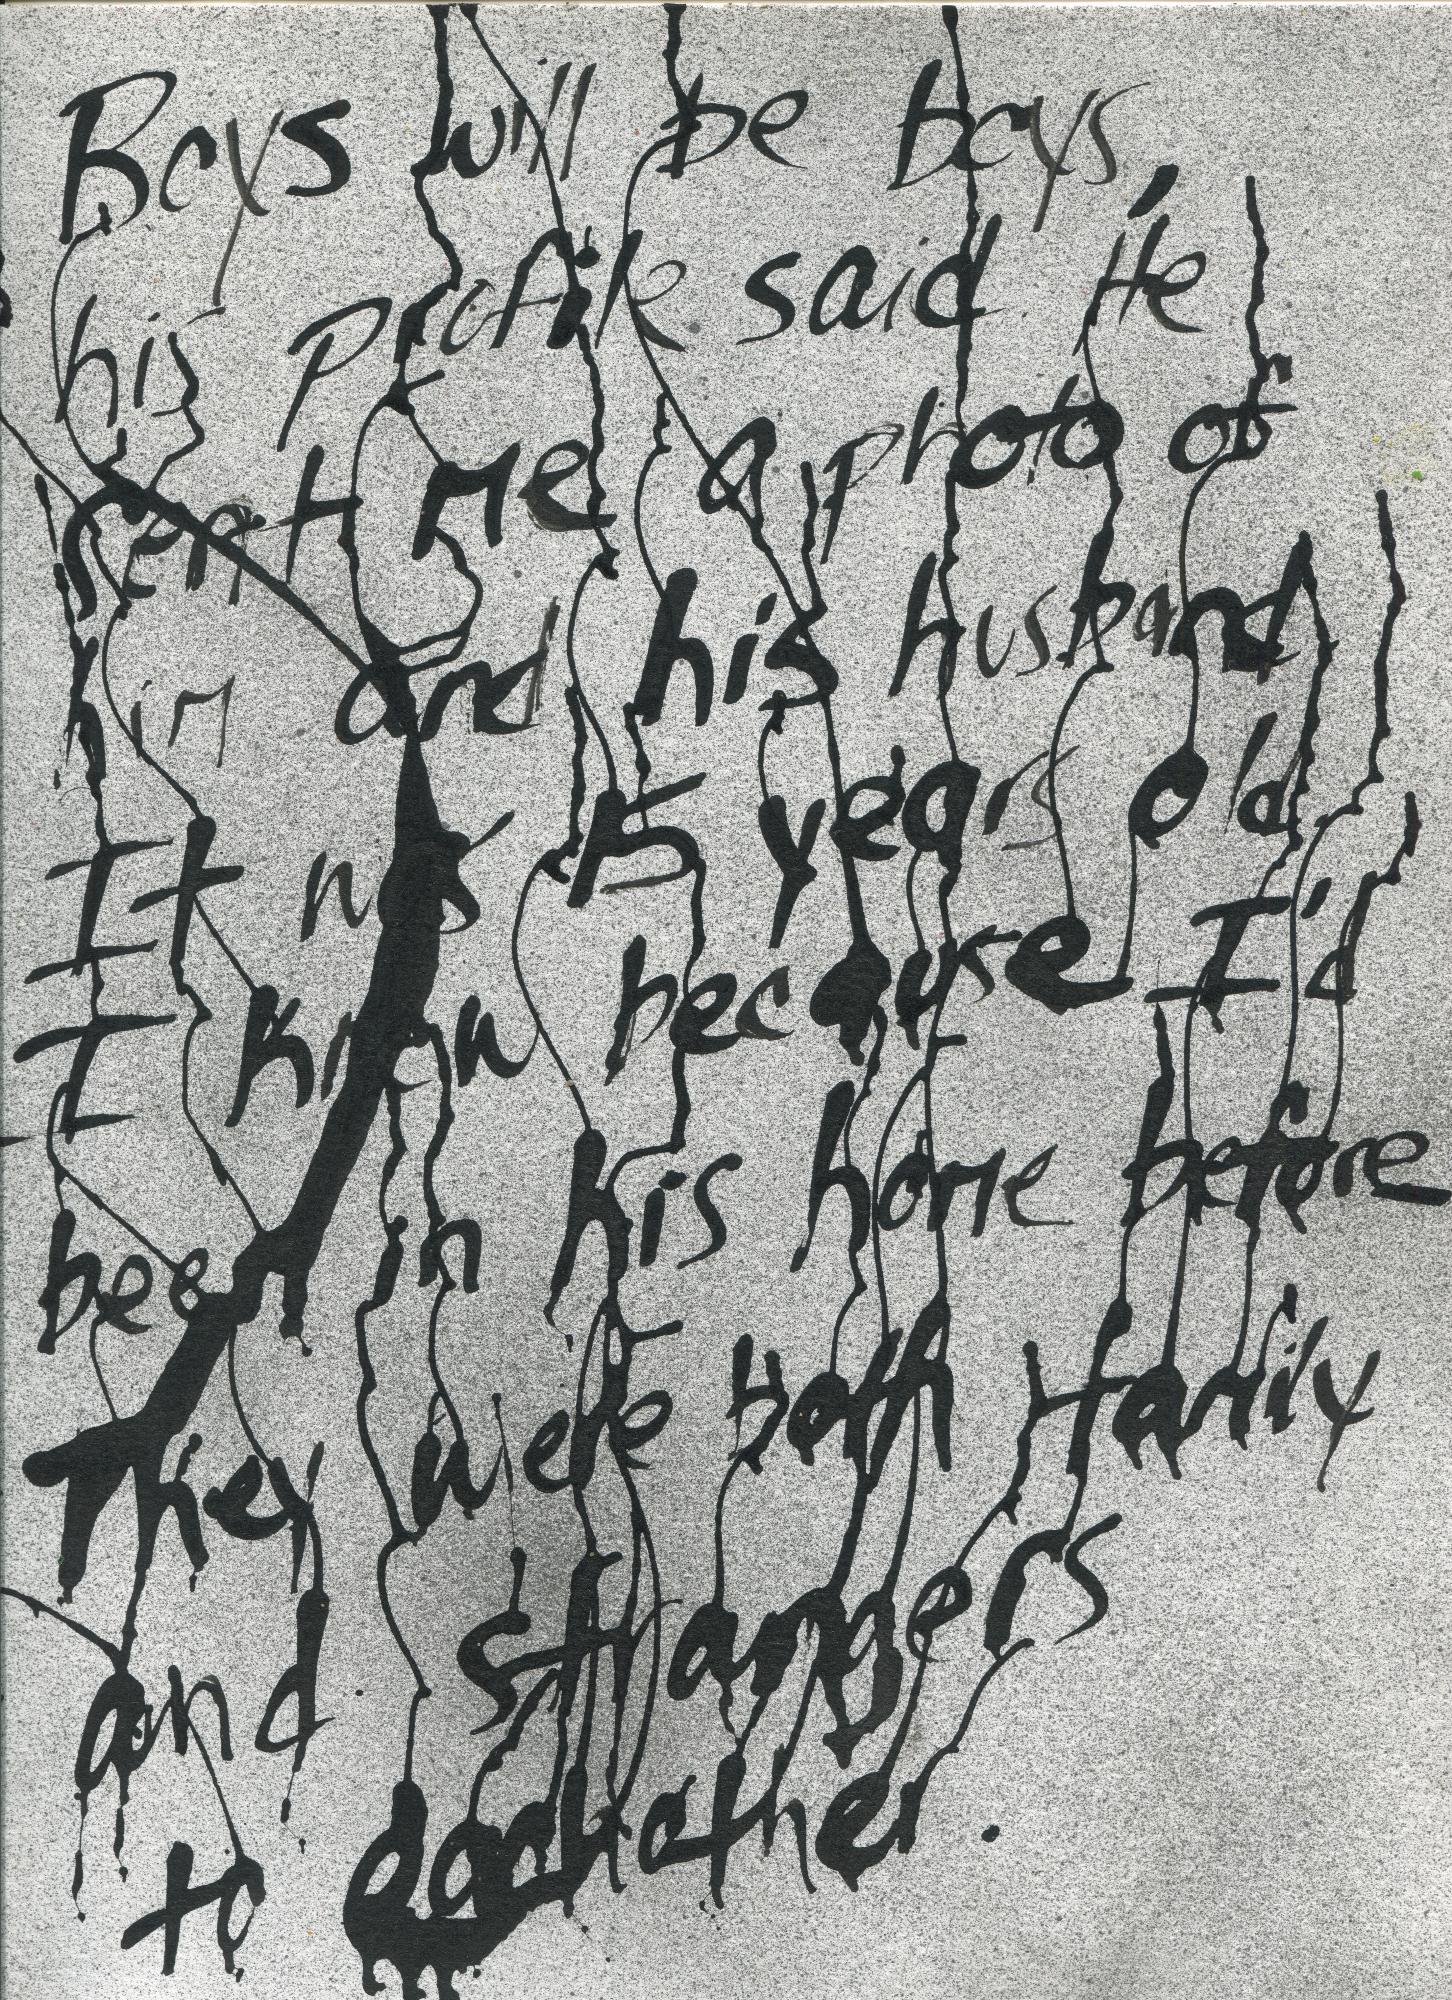 Boys will be boys,
his Profile said He
sent me a photo of
him and his husband
It was 5 years old
I know because I'd
been in his home before
They were both Family
and strangers
to eachother.